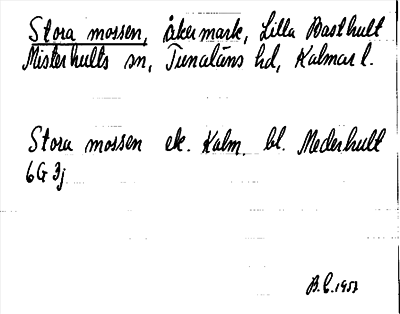 Stora mossen, åkermark, Lilla Basthult
Misterhults sn, Tunaläns hd, Kalmar l.
Stora mossen ek. Kalm. bl. Mederhult
6G 3j
B.C. 1957